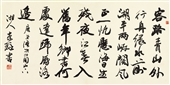 客路青山外
行舟綠水前
潮平兩岸闊風
正一帆懸海日生
殘夜江春入
舊年鄉書何
處達歸雁洛陽
邊